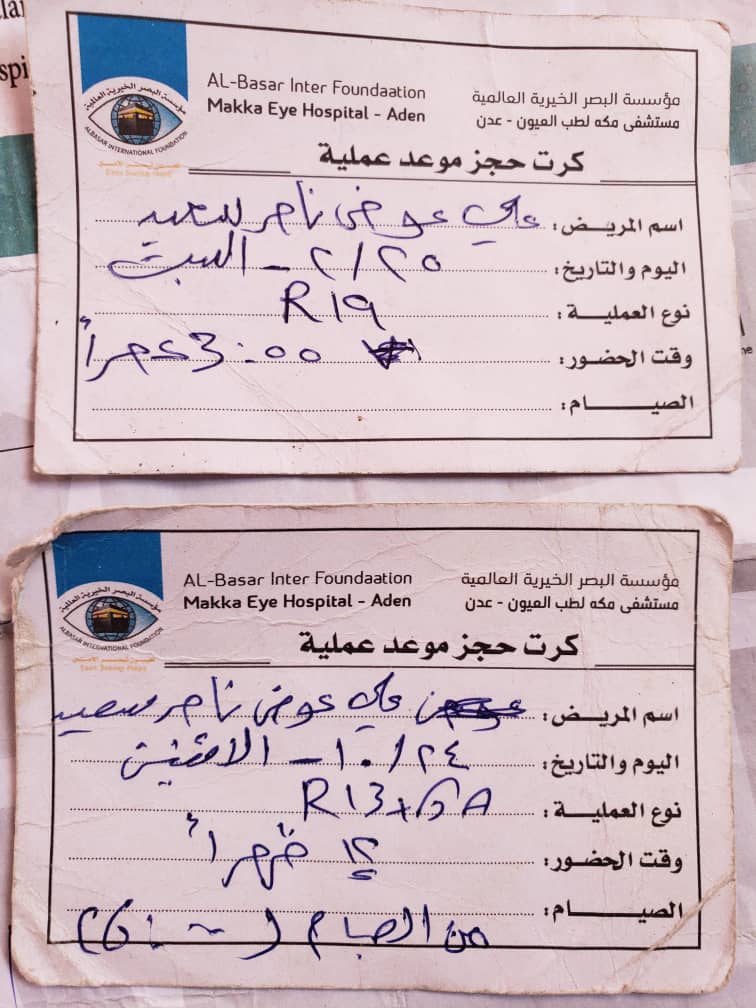 spi
AL-Basar Inter Foundaation
Makka Eye Hospital - Aden
مؤسسة البصر الخيرية العالمية
مستشفى مكه لطب العيون - عدن
مؤسسة البصر الخيرية العالمية
ALBASAR INTERNATIONAL FOUNDATION
كرت حجز موعد عملية
اسم المريض: علي عوض ناصر سعيد
اليوم والتاريخ: ٢/٢٥ - السبت
نوع العملية: R19
وقت الحضور: 3:00 عصراً
الصيام:
AL-Basar Inter Foundaation
Makka Eye Hospital - Aden
مؤسسة البصر الخيرية العالمية
مستشفى مكه لطب العيون - عدن
مؤسسة البصر الخيرية العالمية
ALBASAR INTERNATIONAL FOUNDATION
كرت حجز موعد عملية
اسم المريض: علي عوض ناصر سعيد
اليوم والتاريخ: ١٠/٢٤ - الاثنين
نوع العملية: R13+GA
وقت الحضور: ١٢ ظهراً
الصيام:
من